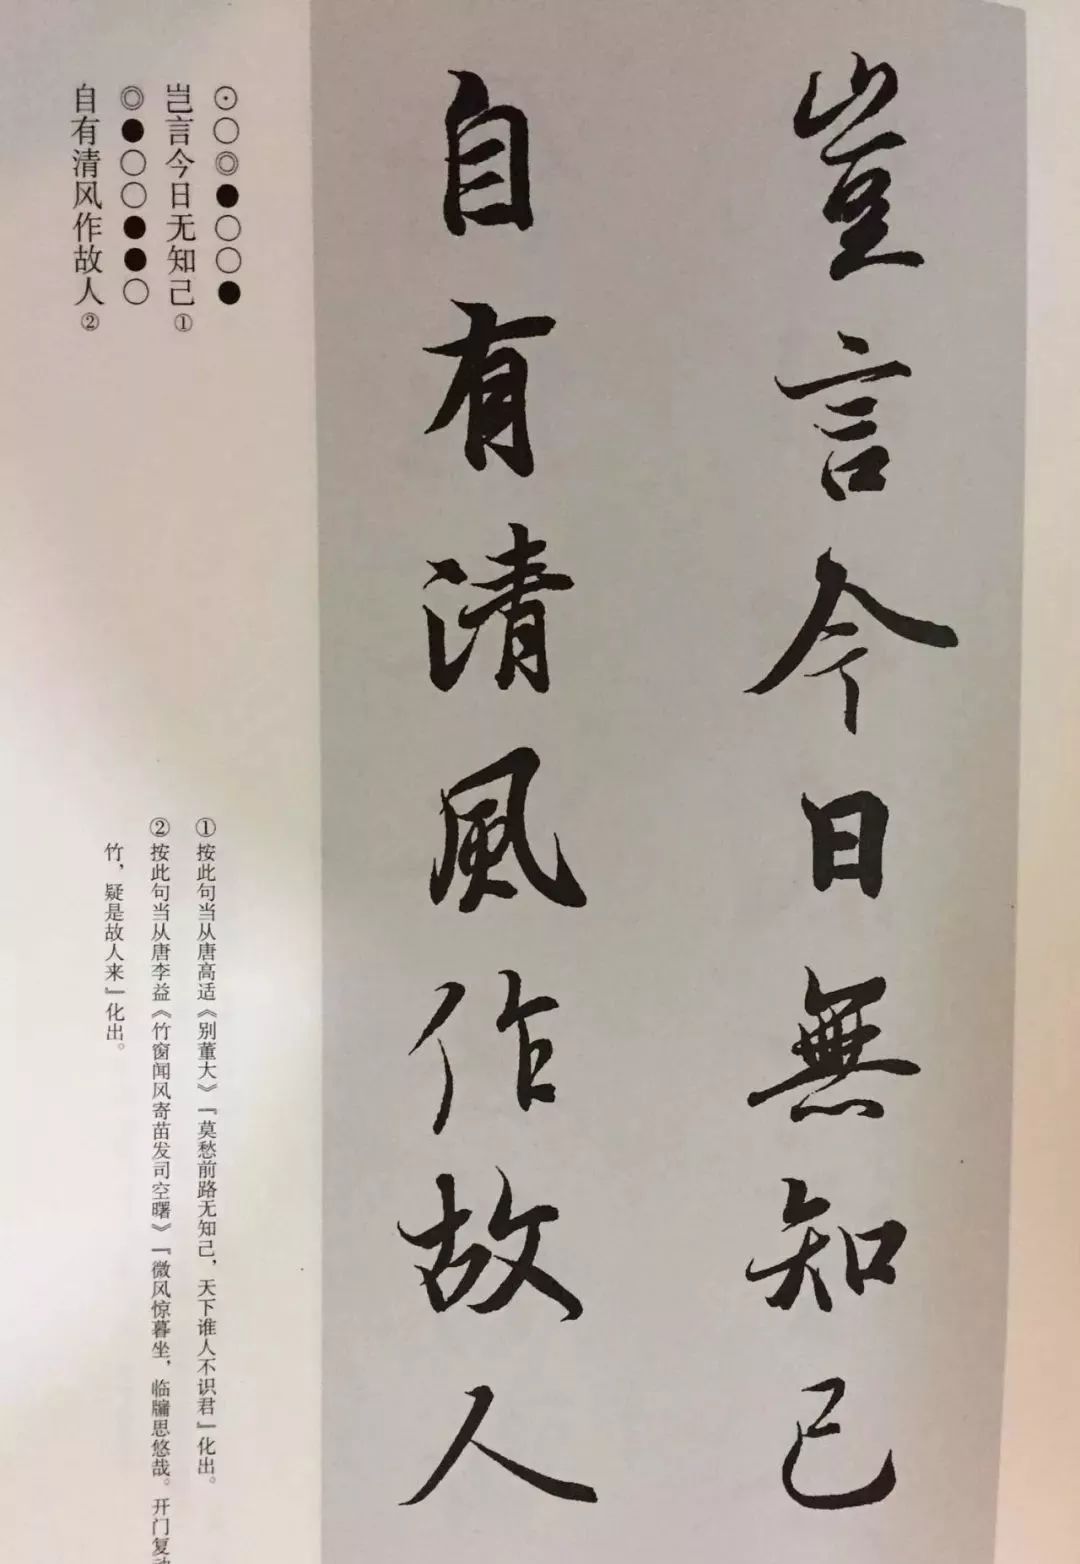 豈言今日無知己
自有清風作故人
⊙○◎●○○●
岂言今日无知己①
◎●○○●●○
自有清风作故人②
①按此句当从唐高适《别董大》『莫愁前路无知己，天下谁人不识君』化出。
②按此句当从唐李益《竹窗闻风寄苗发司空曙》『微风惊暮坐，临牖思悠哉。开门复动
竹，疑是故人来』化出。